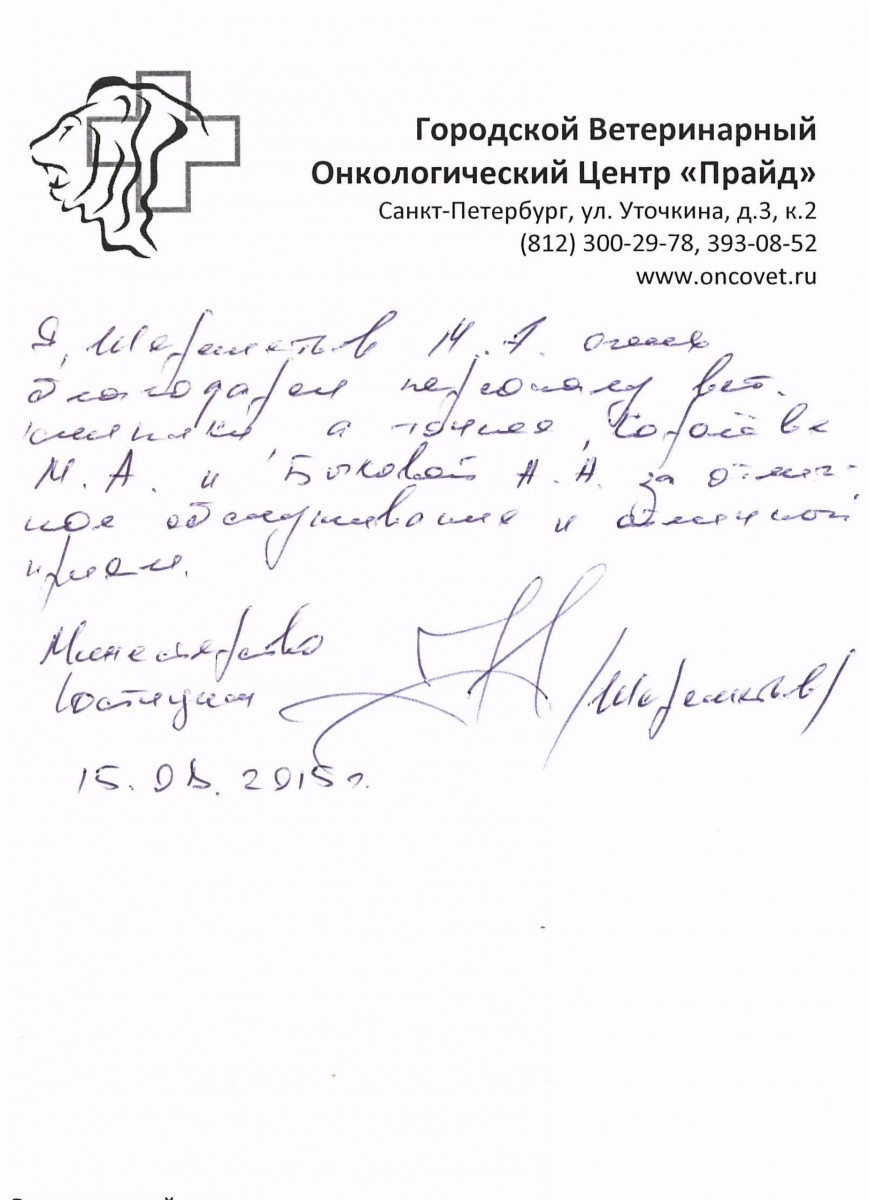 Городской Ветеринарный
Онкологический Центр «Прайд»
Санкт-Петербург, ул. Уточкина, д.3, к.2
(812) 300-29-78, 393-08-52
www.oncovet.ru
Я, М. очень
благодарен персоналу вет.
клиники, а точнее,
М. А. и Быковой А. А. за отлич-
ное обслуживание и отличный
прием.
Министерство
Юстиции
2015г.